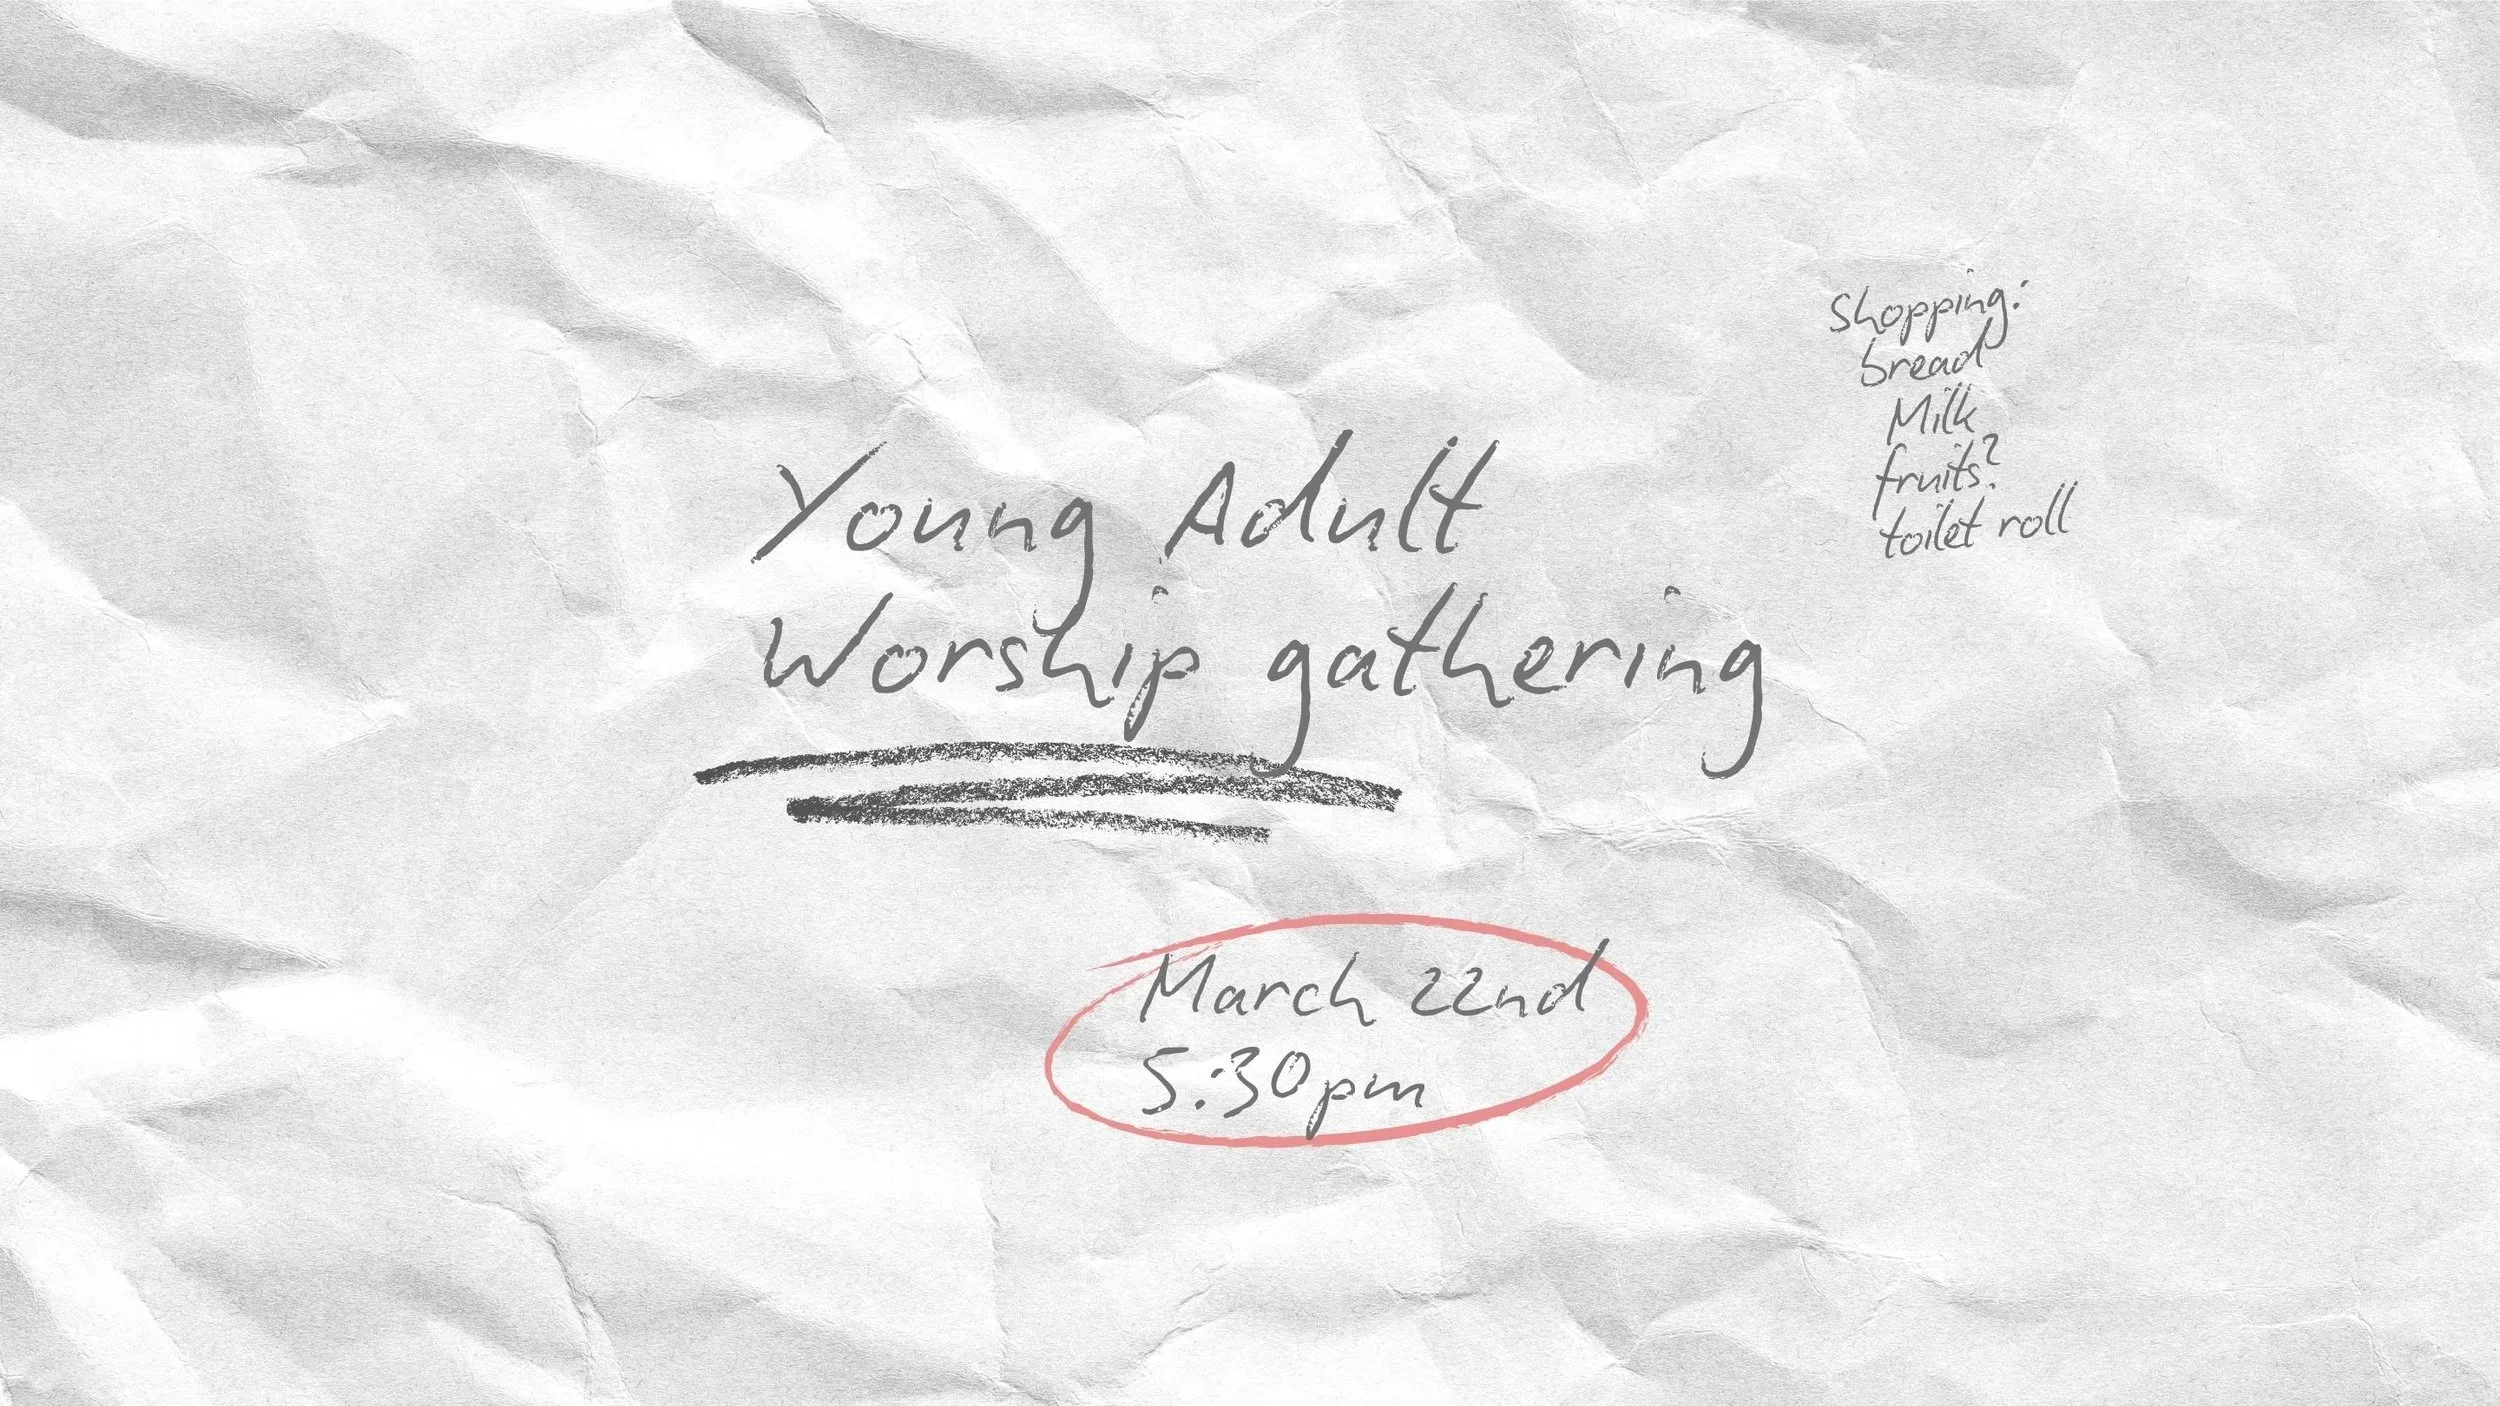 Shopping:
bread
Milk
fruits?
toilet roll
Young Adult
Worship gathering
March 22nd
5:30pm